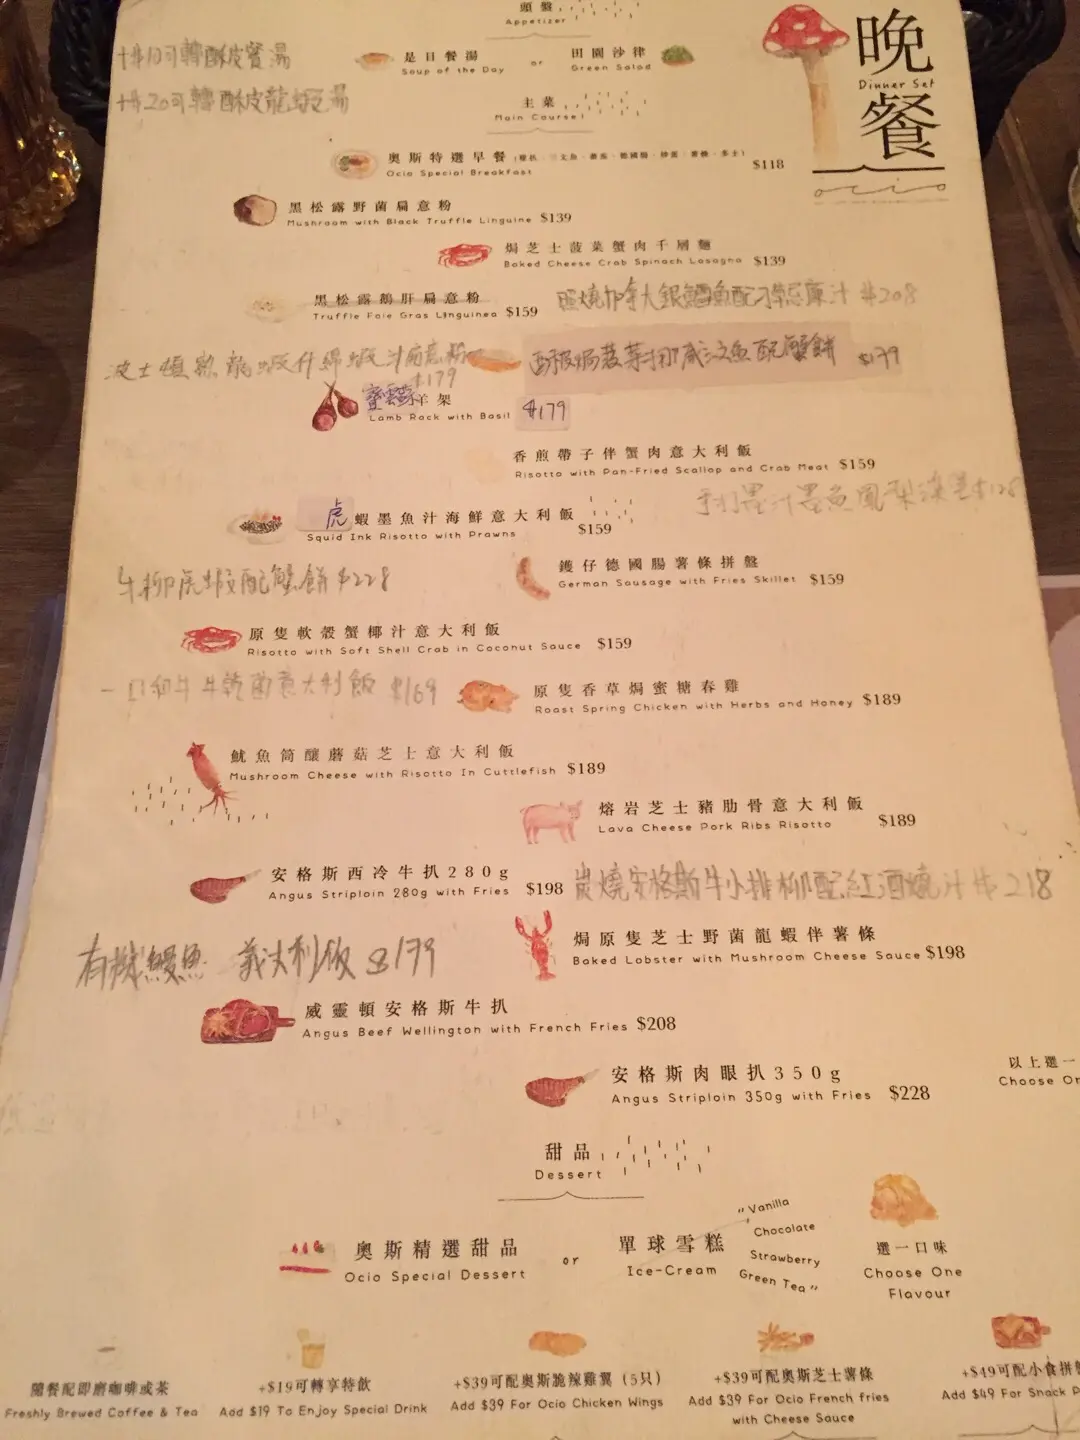 頭盤
Appetizer
晚餐
Dinner Set
ocio
+$10可轉酥皮餐湯
+$20可轉酥皮龍蝦湯
是日餐湯
Soup of the Day
or
田園沙律
Green Salad
主菜
Main Course
奧斯特選早餐
Ocio Special Breakfast $118
黑松露野菌扁意粉
Mushroom with Black Truffle Linguine $139
焗芝士菠菜蟹肉千層麵
Baked Cheese Crab Spinach Lasagna $139
黑松露鵝肝扁意粉
Truffle Foie Gras Linguinea $159
燒加拿大銀鱈魚配 汁 $208
波士頓 龍蝦 蝦汁扁意粉 $179
酥皮焗菠菜 三文魚配蟹餅 $179
羊架
Lamb Rack with Basil $179
香煎帶子伴蟹肉意大利飯
Risotto with Pan-Fried Scallop and Crab Meat $159
手打墨汁墨魚
虎蝦墨魚汁海鮮意大利飯
Squid Ink Risotto with Prawns $159
鑊仔德國腸薯條拼盤
German Sausage with Fries Skillet $159
牛柳虎蝦配蟹餅 $228
原隻軟殼蟹椰汁意大利飯
Risotto with Soft Shell Crab in Coconut Sauce $159
一口和牛牛乾菌意大利飯 $169
原隻香草焗蜜糖春雞
Roast Spring Chicken with Herbs and Honey $189
魷魚筒釀蘑菇芝士意大利飯
Mushroom Cheese with Risotto In Cuttlefish $189
熔岩芝士豬肋骨意大利飯
Lava Cheese Pork Ribs Risotto $189
安格斯西冷牛扒280g
Angus Striploin 280g with Fries $198
炭燒安格斯牛小排柳配紅酒燒汁 $218
焗原隻芝士野菌龍蝦伴薯條
Baked Lobster with Mushroom Cheese Sauce $198
有機鰻魚 義大利飯 $179
威靈頓安格斯牛扒
Angus Beef Wellington with French Fries $208
安格斯肉眼扒350g
Angus Striploin 350g with Fries $228
以上選一
Choose On
甜品
Dessert
奧斯精選甜品
Ocio Special Dessert
or
單球雪糕
Ice-Cream
"Vanilla
Chocolate
Strawberry
Green Tea"
選一口味
Choose One
Flavour
隨餐配即磨咖啡或茶
Freshly Brewed Coffee & Tea
+$19可轉享特飲
Add $19 To Enjoy Special Drink
+$39可配奧斯脆辣雞翼（5只）
Add $39 For Ocio Chicken Wings
+$39可配奧斯芝士薯條
Add $39 For Ocio French fries
with Cheese Sauce
+$49可配小食拼盤
Add $49 For Snack P